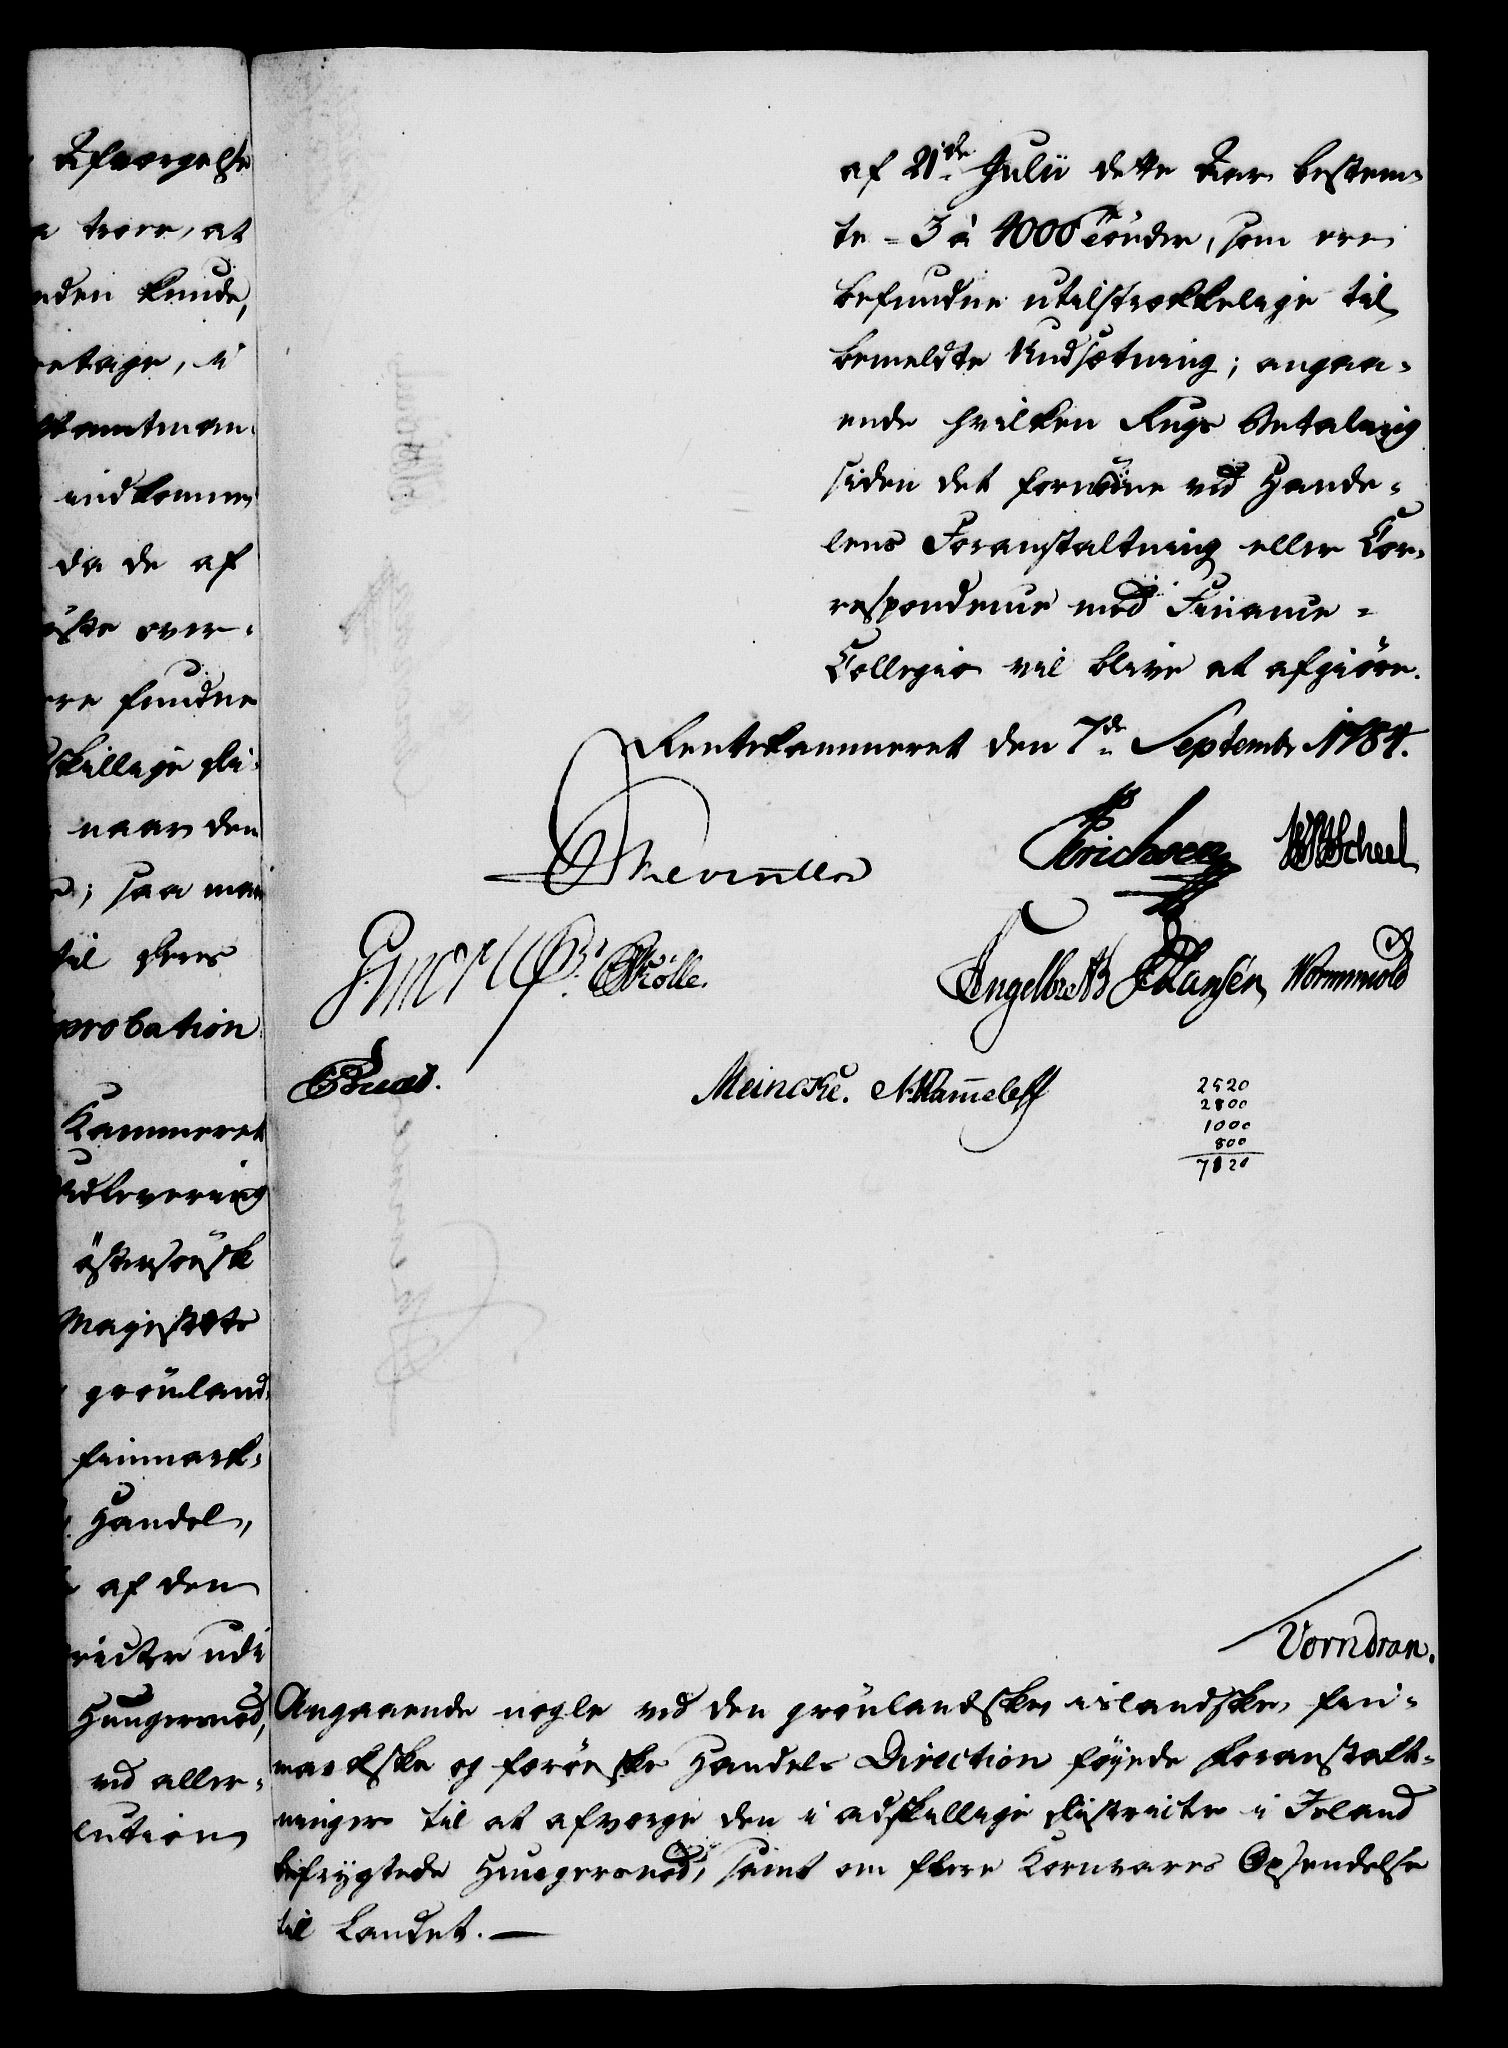 Afværgelse
troer, at
nden kunde,
etage, i
tamtman-
indkomne
da de af
øste over-
re fundne
skillige Di-
naar den
; saa maa
til Deres
probation
Kammeret
Udlevering
östersöisk
Magistrats
grönland-
finmark-
Handel,
af den
tricter udi
Hungersnöd,
ved aller-
lution
af 21de Julii dette Aar bestem-
te = 3 à 4000 Tönder, som ere
befundne utilstrækkelige til
bemeldte Undsætning; angaa-
ende hvilken Rugs Betaling
siden det fornödne ved Hande-
lens Foranstaltning eller Cor-
respondence med Finance-
Collegio vil blive at afgiöre.
Rentekammeret den 7de Septembr 1784.
Reventlow
Erichsen WScheel
Rölle.
Engelbreth Hansen Wormskiold
Meincke. N. Hammeleff
2520
2800
1000
800
7820
Vorndran.
Angaaende nogle ved den grönlandske, islandske, fin-
markske og færöiske Handels Direction föyede Foranstalt-
ninger til at afværge den i adskillige Districter i Island
befrygtede Hungersnöd, samt om flere Kornvares Opsendelse
til Landet. —